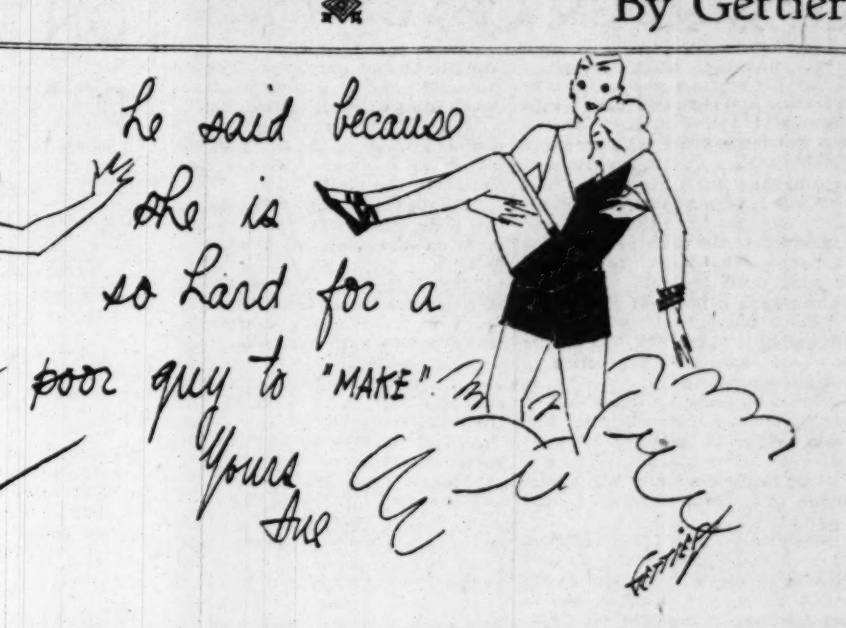 By Gettier
he said because
she is
so hard for a
poor guy to "MAKE"
Yours
Sue
Gettier